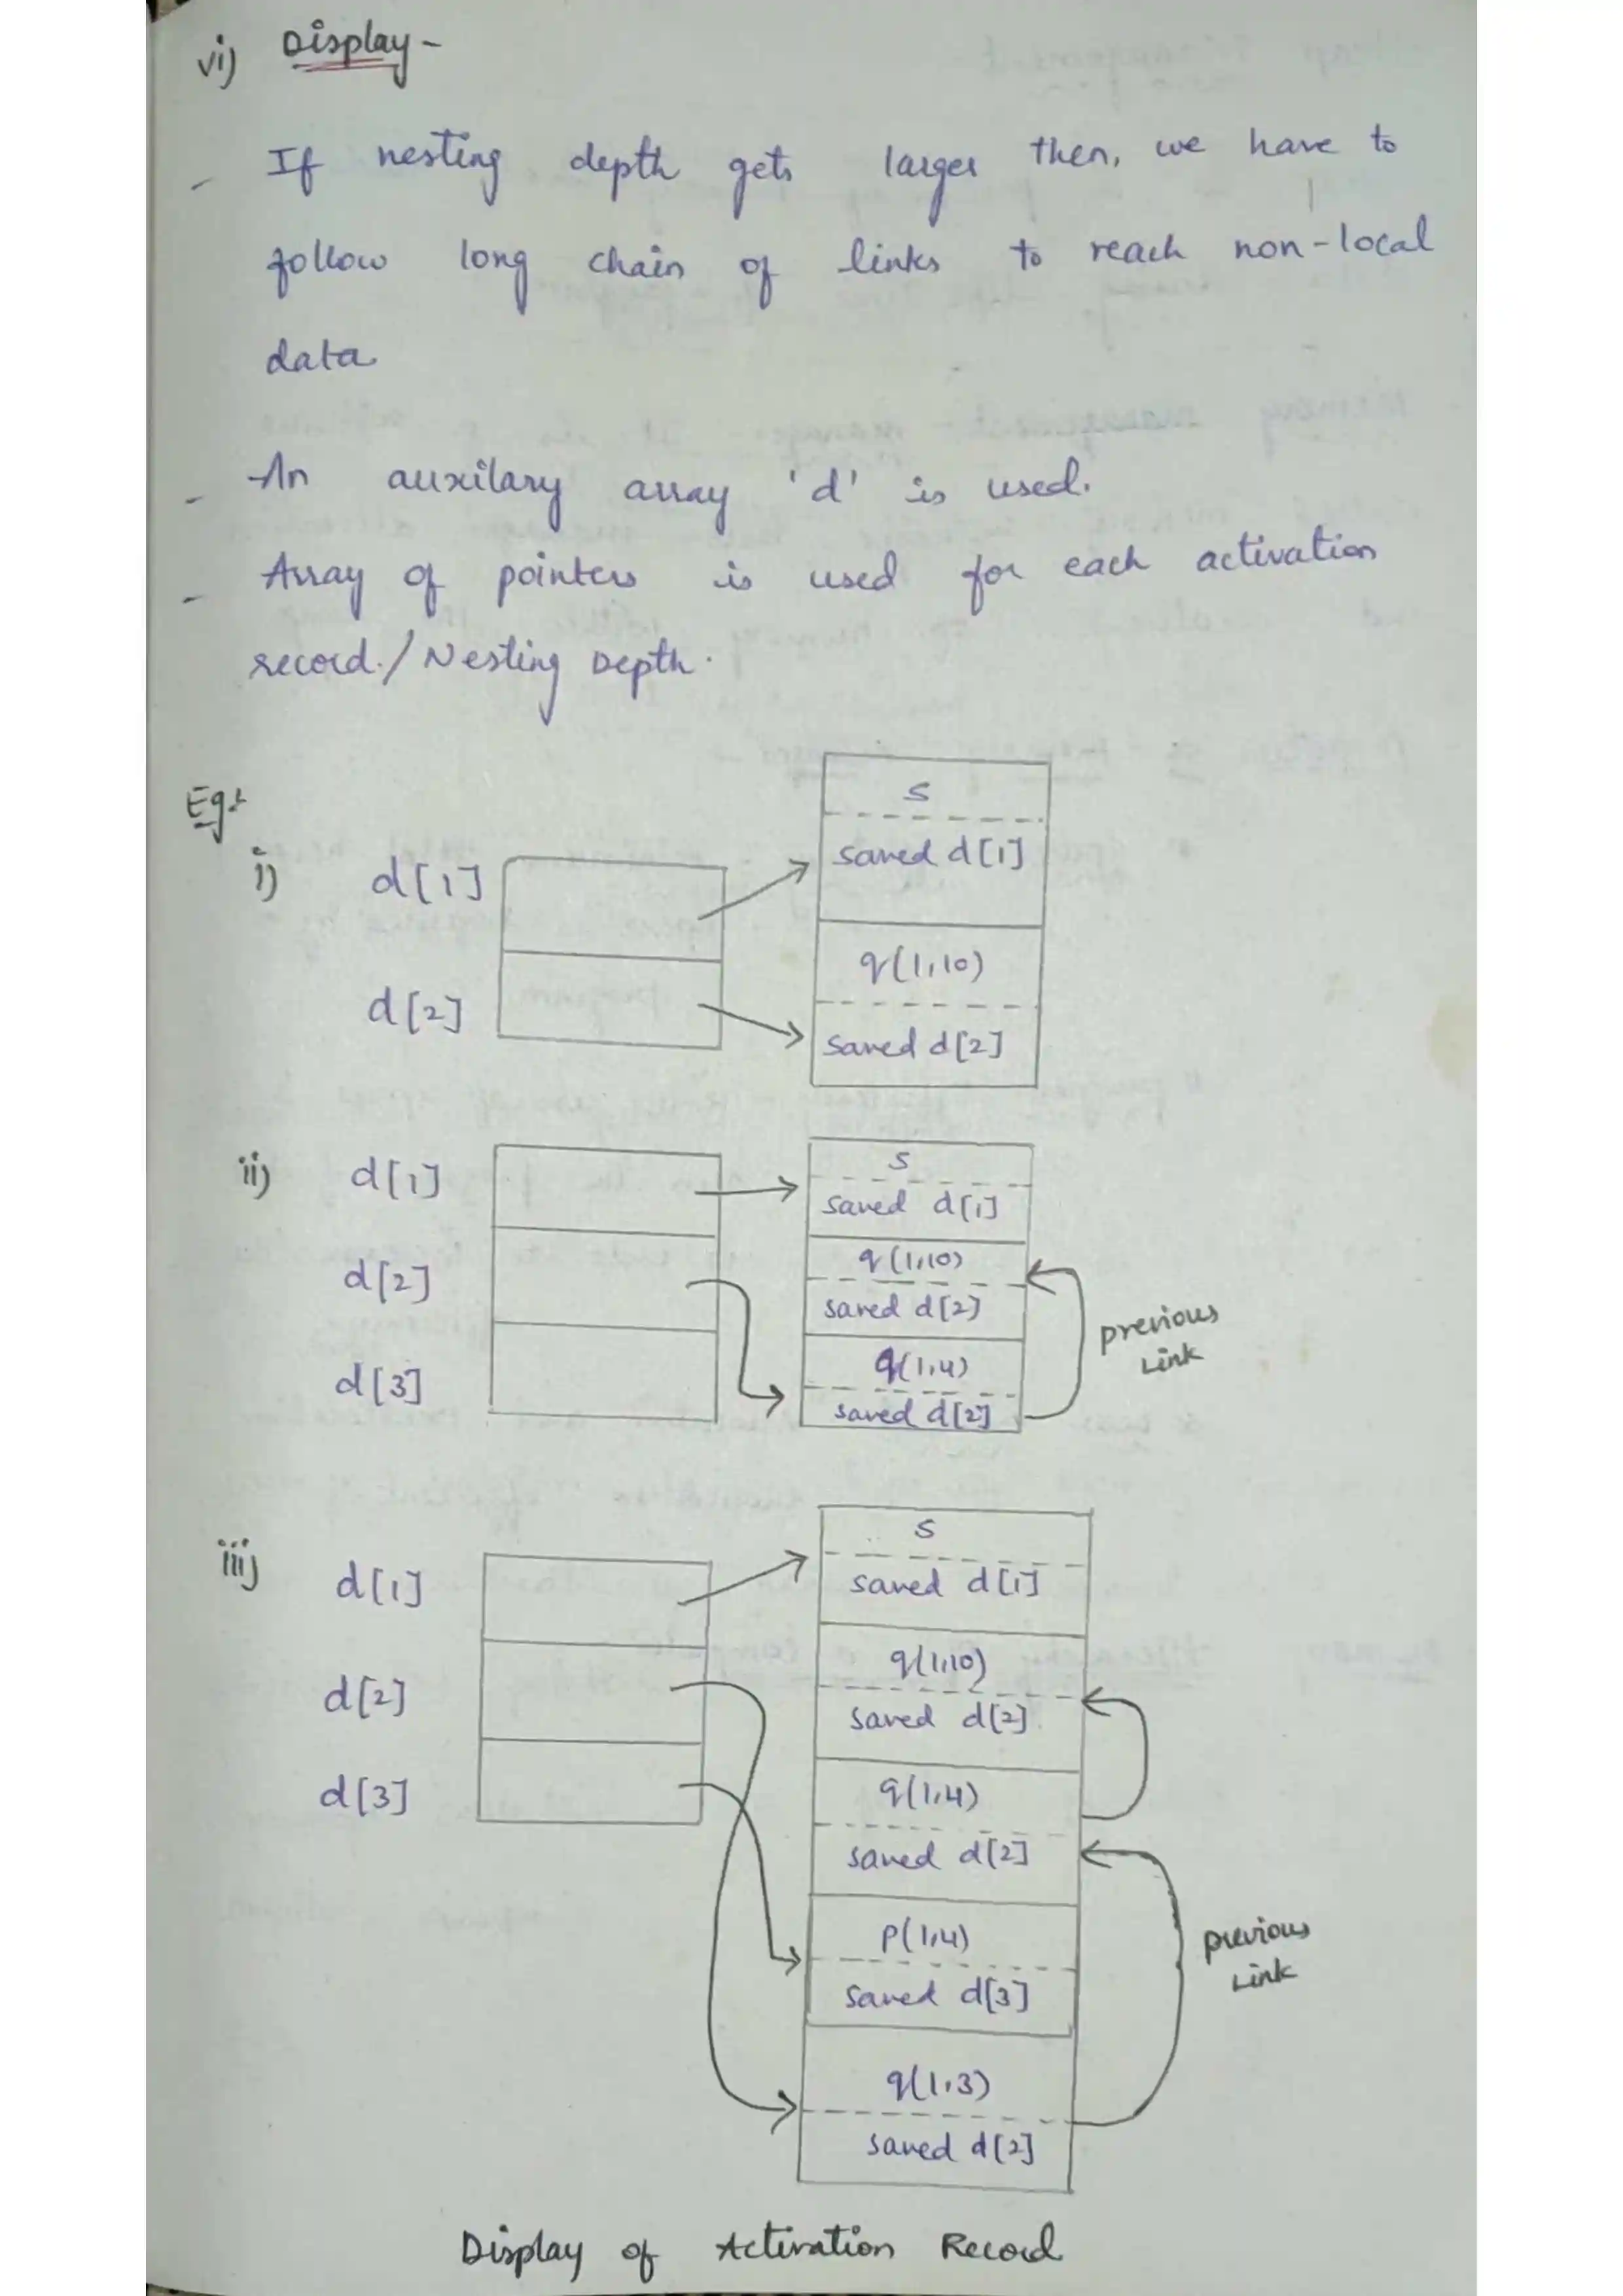 vi) Display -
- If nesting depth gets larger then, we have to
follow long chain of links to reach non-local
data
- An auxilary array 'd' is used.
- Array of pointers is used for each activation
record./Nesting Depth.
Eg:
i) d[1]
d[2]
s
saved d[1]
q(1,10)
saved d[2]
ii) d[1]
d[2]
d[3]
s
saved d[1]
q(1,10)
saved d[2]
q(1,4)
saved d[2]
previous
Link
iii) d[1]
d[2]
d[3]
s
saved d[1]
q(1,10)
saved d[2]
q(1,4)
saved d[2]
p(1,4)
saved d[3]
q(1,3)
saved d[2]
previous
Link
Display of Activation Record